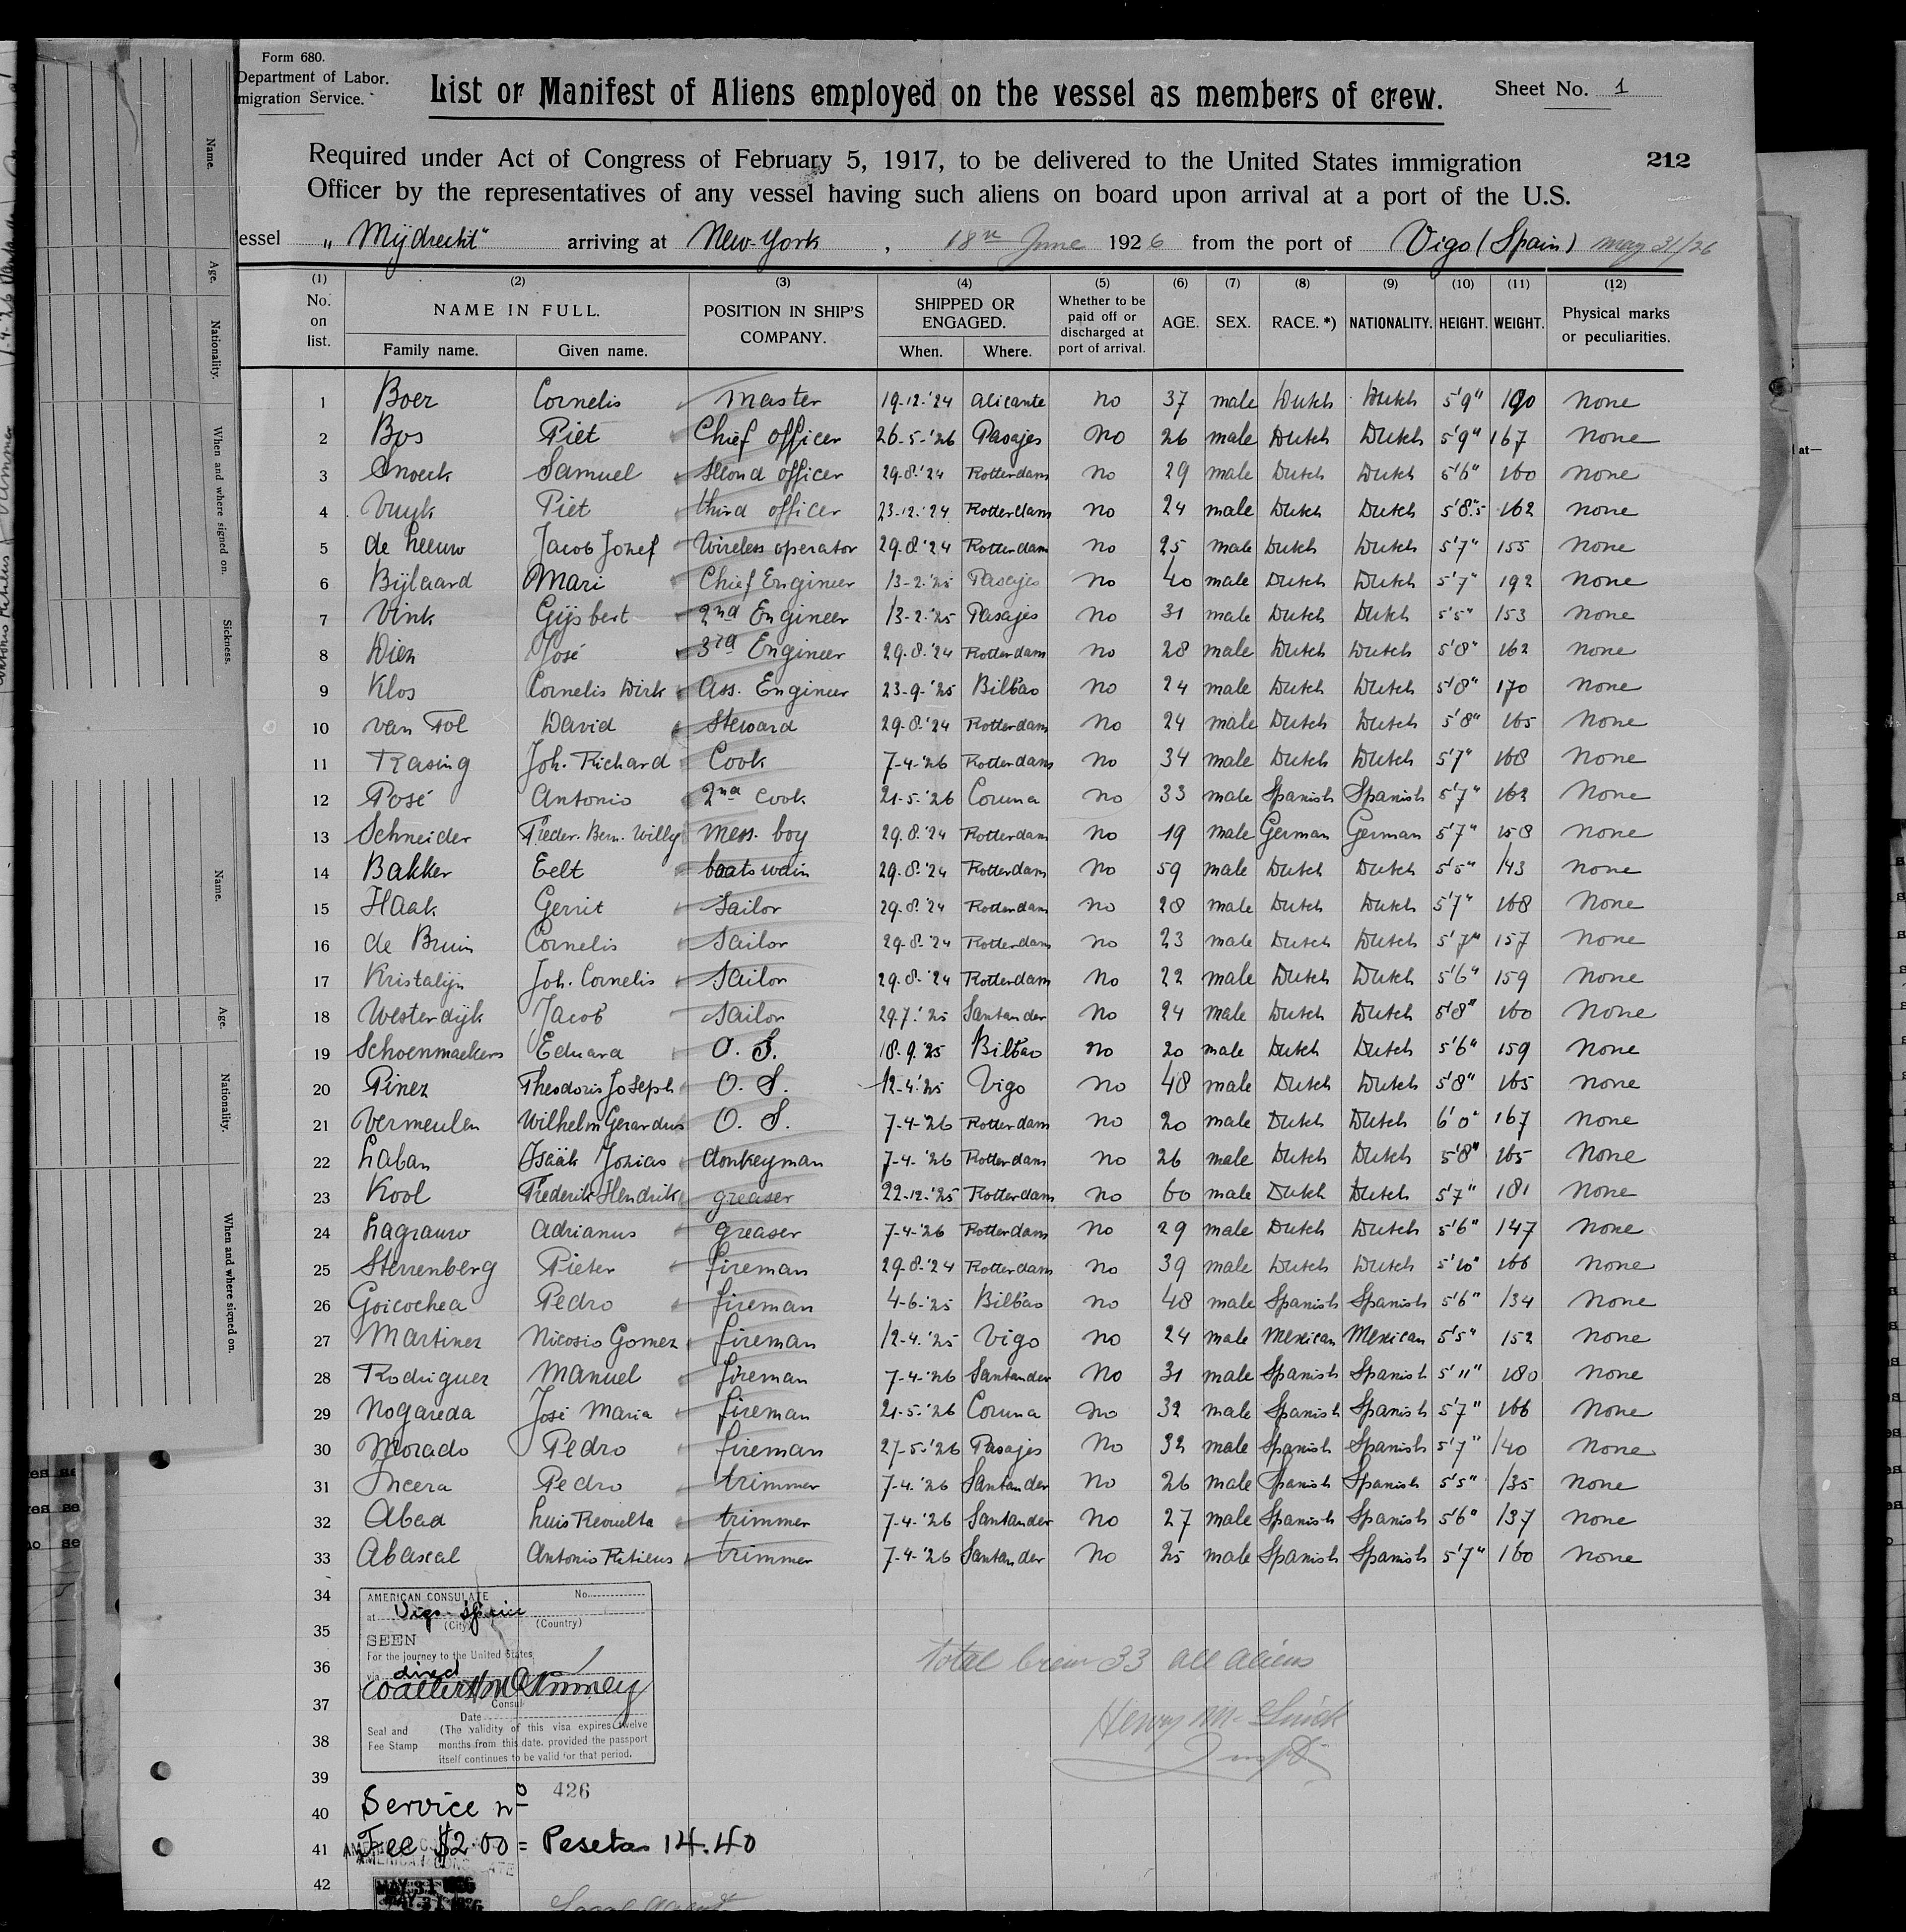 Form 680.
Department of Labor.
migration Service.
List or Manifest of Aliens employed on the vessel as members of crew.
Sheet No. 1
Required under Act of Congress of February 5, 1917, to be delivered to the United States immigration
212
Officer by the representatives of any vessel having such aliens on board upon arrival at a port of the U.S.
essel „ Mijdrecht" arriving at New-York, 18th June 1926 from the port of Vigo (Spain) May 31/26
(1) (2) (3) (4) (5) (6) (7) (8) (9) (10) (11) (12)
No. on list. NAME IN FULL. Family name. Given name. POSITION IN SHIP'S COMPANY. SHIPPED OR ENGAGED. When. Where. Whether to be paid off or discharged at port of arrival. AGE. SEX. RACE. *) NATIONALITY. HEIGHT. WEIGHT. Physical marks or peculiarities.
1 Boer Cornelis Master 19-12-'24 Alicante No 37 male Dutch Dutch 5'9" 190 None
2 Bos Piet Chief officer 26-5-'26 Pasajes No 26 male Dutch Dutch 5'9" 167 None
3 Snoeck Samuel second officer 29-8-'24 Rotterdam No 29 male Dutch Dutch 5'6" 160 None
4 Vuyk Piet third officer 23-12-'24 Rotterdam No 24 male Dutch Dutch 5'8.5 162 None
5 de Leeuw Jacob Jozef Wireless operator 29-8-'24 Rotterdam No 25 male Dutch Dutch 5'7" 155 None
6 Bijlaard Mari Chief Engineer 13-2-'25 Pasajes No 40 male Dutch Dutch 5'7" 192 None
7 Vink Gijsbert 2nd Engineer 13-2-'25 Pasajes No 31 male Dutch Dutch 5'5" 153 None
8 Dien José 3rd Engineer 29-8-'24 Rotterdam No 28 male Dutch Dutch 5'8" 162 None
9 Klos Cornelis Dirk Ass. Engineer 23-9-'25 Bilbao No 24 male Dutch Dutch 5'8" 170 None
10 van Tol David Steward 29-8-'24 Rotterdam No 24 male Dutch Dutch 5'8" 165 None
11 Rasing Joh. Richard Cook 7-4-'26 Rotterdam No 34 male Dutch Dutch 5'7" 168 None
12 Posé Antonio 2nd Cook 21-5-'26 Coruna No 33 male Spanish Spanish 5'7" 162 None
13 Schneider Freder. Bern. Willy Mess. boy 29-8-'24 Rotterdam No 19 male German German 5'7" 158 None
14 Bakker Eelt boatswain 29-8-'24 Rotterdam No 59 male Dutch Dutch 5'5" 143 None
15 Haak Gerrit Sailor 29-8-'24 Rotterdam No 28 male Dutch Dutch 5'7" 168 None
16 de Bruin Cornelis Sailor 29-8-'24 Rotterdam No 23 male Dutch Dutch 5'7" 157 None
17 Kristalijn Joh. Cornelis Sailor 29-8-'24 Rotterdam No 22 male Dutch Dutch 5'6" 159 None
18 Westerdijk Jacob Sailor 29-7-'25 Santander No 24 male Dutch Dutch 5'8" 160 None
19 Schoenmaekers Eduard O. S. 18-9-'25 Bilbao No 20 male Dutch Dutch 5'6" 159 None
20 Pinez Theodoris Joseph O. S. 12-4-'25 Vigo No 48 male Dutch Dutch 5'8" 165 None
21 Vermeulen Wilhelm Gerardus O. S. 7-4-'26 Rotterdam No 20 male Dutch Dutch 6'0" 167 None
22 Laban Isaäk Jozias donkeyman 7-4-'26 Rotterdam No 26 male Dutch Dutch 5'8" 165 None
23 Kool Frederik Hendrik greaser 22-12-'25 Rotterdam No 60 male Dutch Dutch 5'7" 181 None
24 Lagrauw Adrianus greaser 7-4-'26 Rotterdam No 29 male Dutch Dutch 5'6" 147 None
25 Sterrenberg Pieter fireman 29-8-'24 Rotterdam No 39 male Dutch Dutch 5'10" 166 None
26 Goicochea Pedro fireman 4-6-'25 Bilbao No 48 male Spanish Spanish 5'6" 134 None
27 Martinez Nicosio Gomez fireman 12-4-'25 Vigo No 24 male Mexican Mexican 5'5" 152 None
28 Rodriguez Manuel fireman 7-4-'26 Santander No 31 male Spanish Spanish 5'11" 180 None
29 Nogareda José Maria fireman 21-5-'26 Coruna No 32 male Spanish Spanish 5'7" 166 None
30 Morado Pedro fireman 27-5-'26 Pasajes No 32 male Spanish Spanish 5'7" 140 None
31 Incera Pedro trimmer 7-4-'26 Santander No 26 male Spanish Spanish 5'5" 135 None
32 Abad Luis Revuelta trimmer 7-4-'26 Santander No 27 male Spanish Spanish 5'6" 137 None
33 Abascal Antonio trimmer 7-4-'26 Santander No 25 male Spanish Spanish 5'7" 160 None
34
35
36
37
38
39
40
41
42
AMERICAN CONSULATE No.
at Vigo Spain
(City) (Country)
SEEN
For the journey to the United States
via direct
Consul
Date
Seal and Fee Stamp
(The validity of this visa expires twelve
months from this date, provided the passport
itself continues to be valid for that period.
Total crew 33 all aliens
Henry M.
Insp
Service No 426
Fee $2.00 = Pesetas 14.40
MAY 31 1926
Name.
Age.
Nationality.
When and where signed on.
Sickness.
Name.
Age.
Nationality.
When and where signed on.
at—